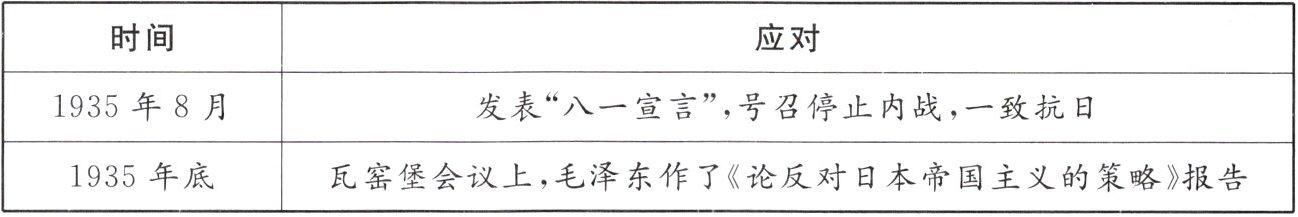 时间 应对
1935年8月 发表“八一宣言”,号召停止内战,一致抗日
1935年底 瓦窑堡会议上,毛泽东作了《论反对日本帝国主义的策略》报告